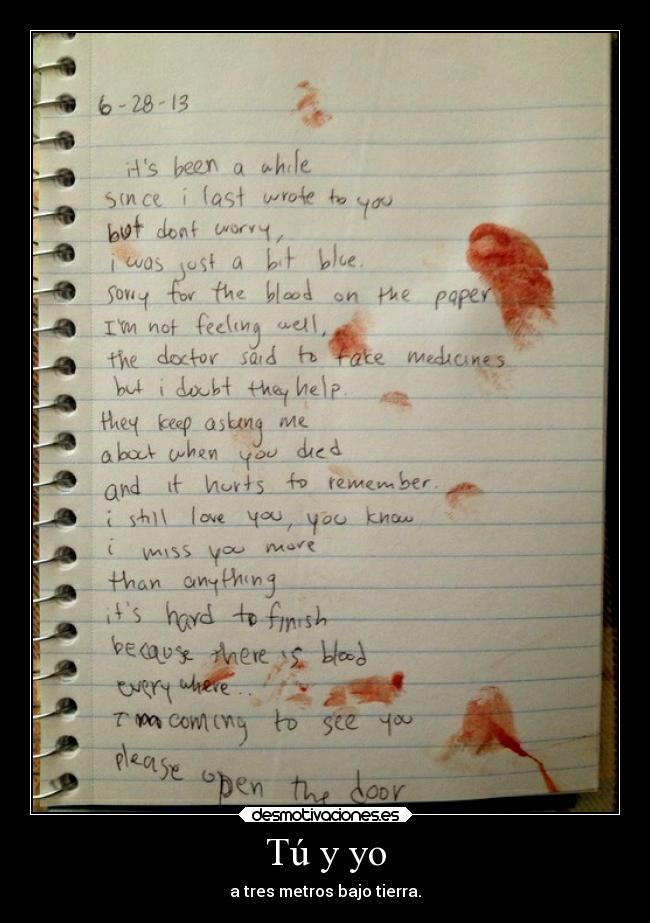 6-28-13
it's been a while
since i last wrote to you
but dont worry,
i was just a bit blue.
sorry for the blood on the paper
I'm not feeling well,
the doctor said to take medicines
but i doubt they help.
they keep asking me
about when you died
and it hurts to remember.
i still love you, you know
i miss you more
than anything
it's hard to finish
because there is blood
every where..
I'm coming to see you
please open the door
desmotivaciones.es
Tú y yo
a tres metros bajo tierra.